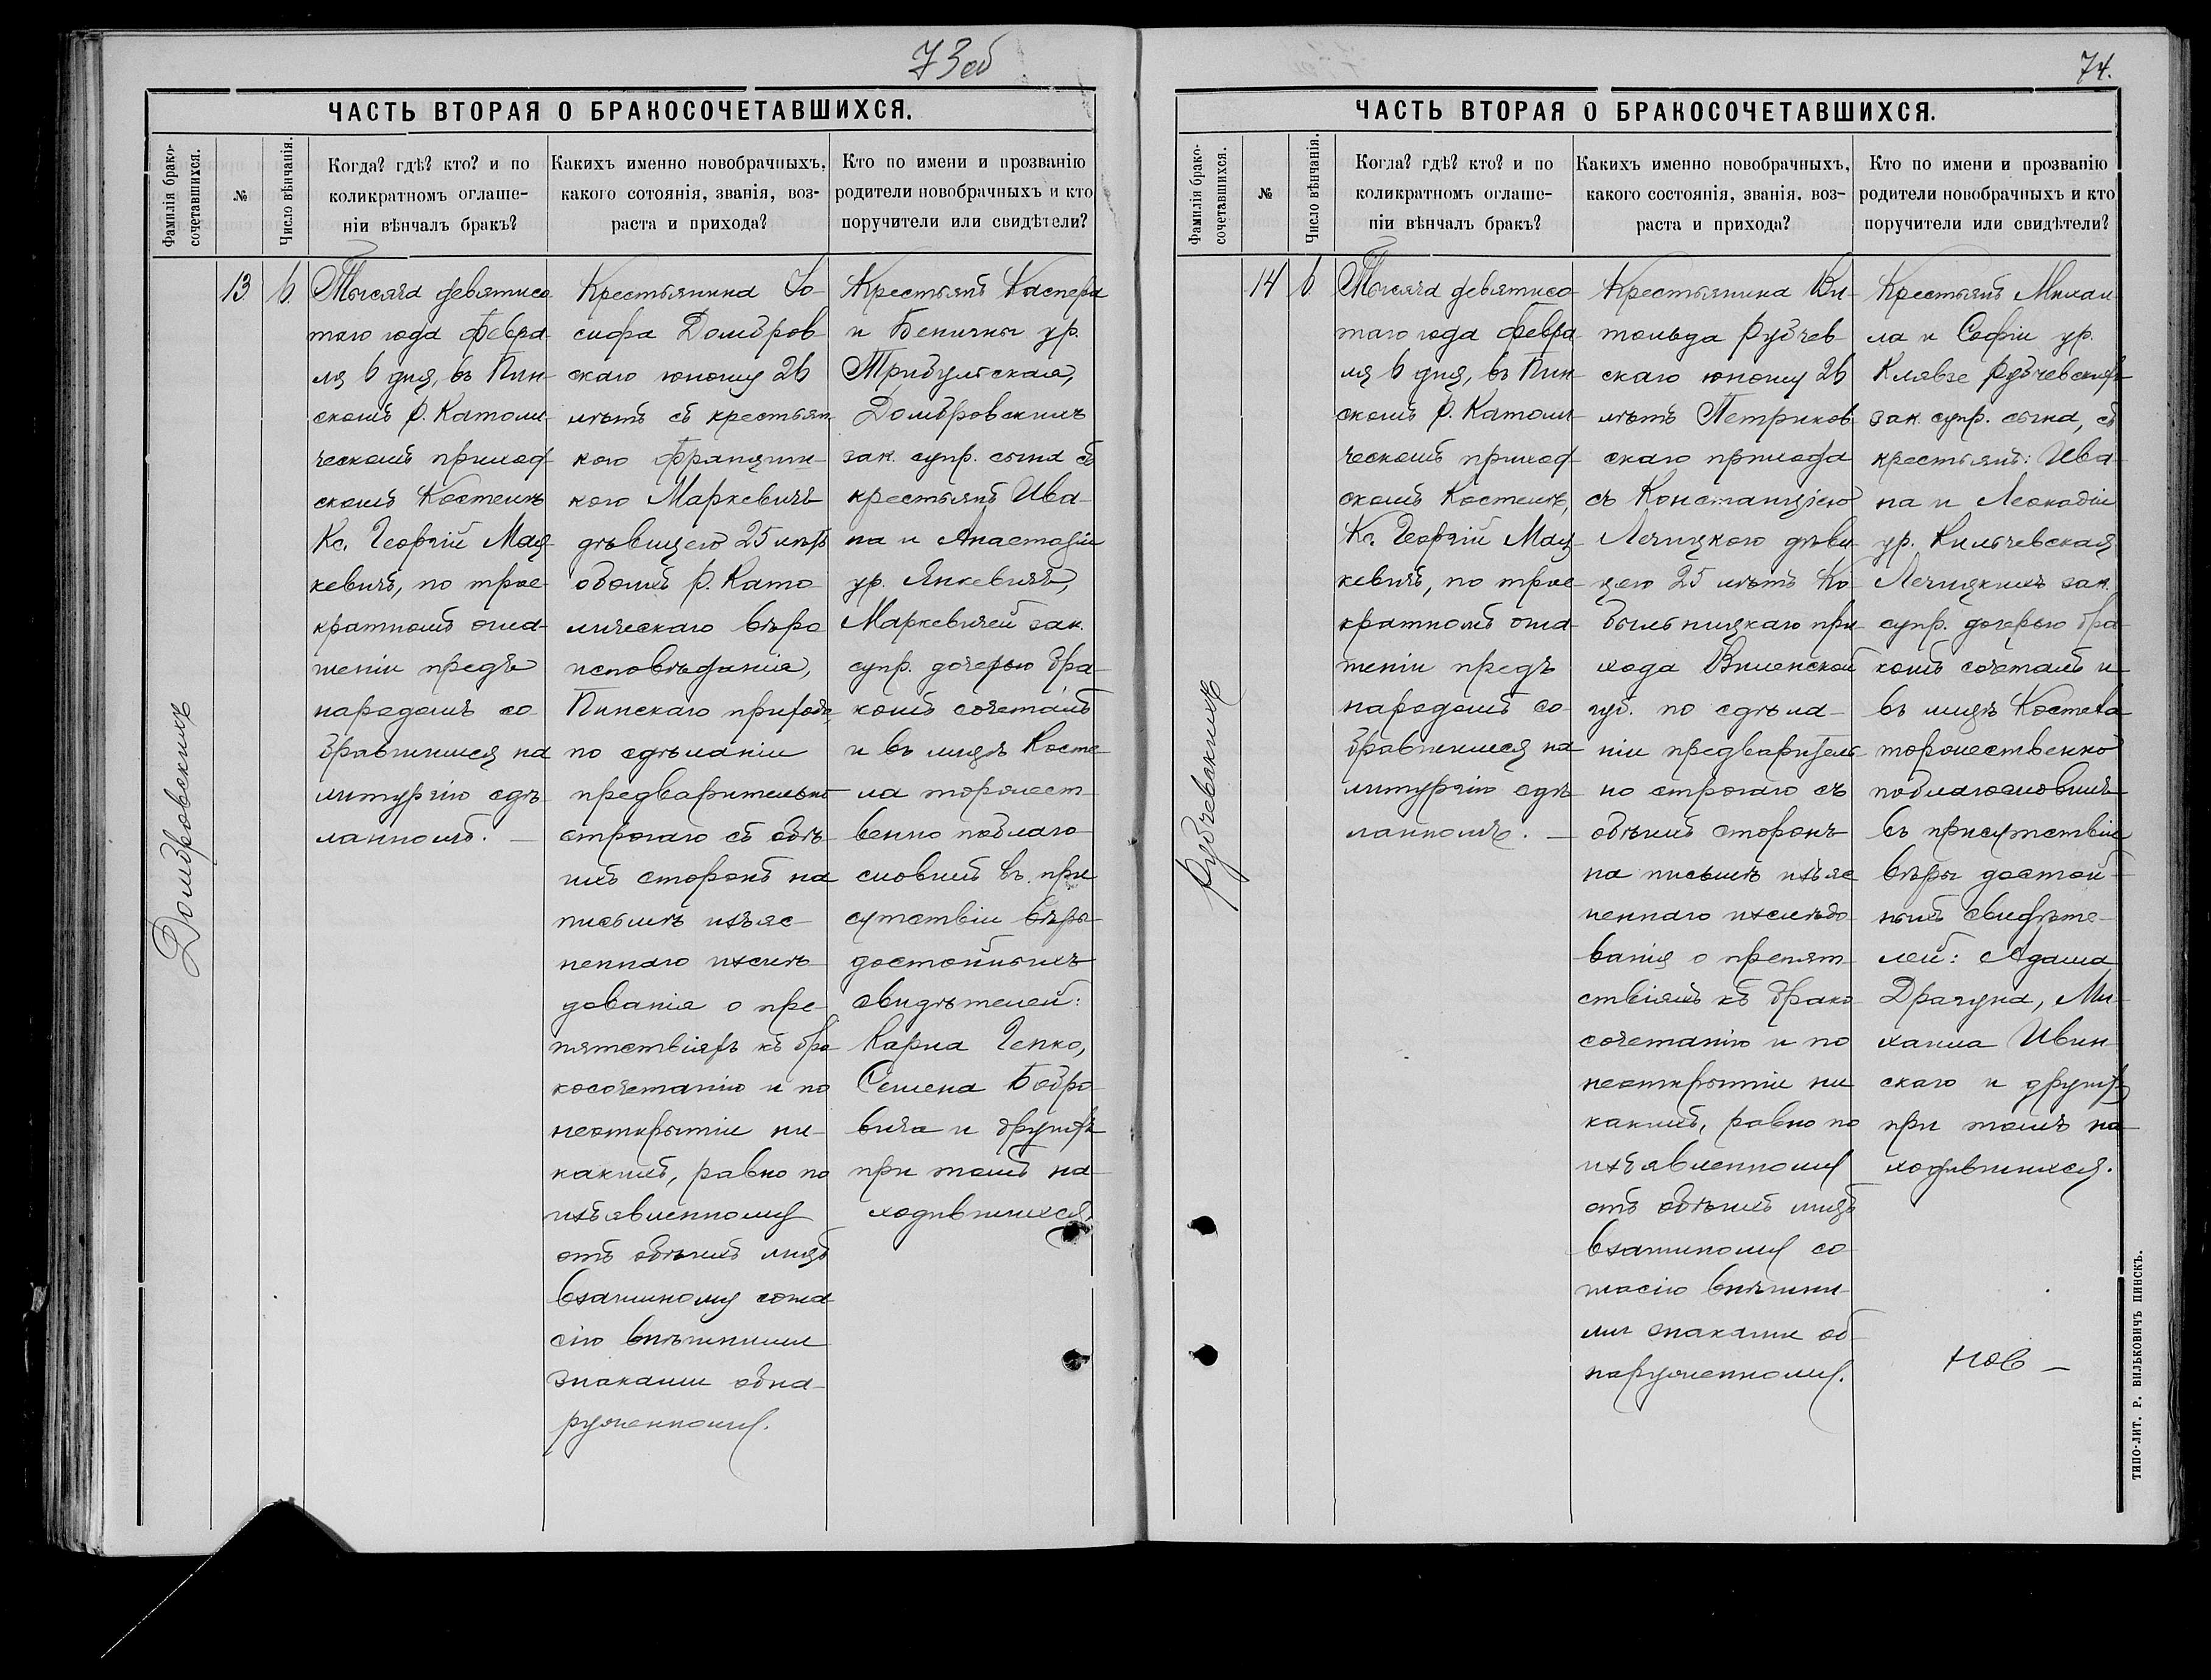 73об
ЧАСТЬ ВТОРАЯ О БРАКОСОЧЕТАВШИХСЯ.
Фамилія брако-
сочетавшихся.
№
Число вѣнчанія.
Когда? гдѣ? кто? и по
коликратномъ оглаше-
ніи вѣнчалъ бракъ?
Какихъ именно новобрачныхъ,
какого сотоянія, званія, воз-
раста и прихода?
Кто по имени и прозванію
родители новобрачныхъ и кто
поручители или свидѣтели?
Домбровскихъ
13
6.
Тысяча девятисо
таго года Февра
ля 6 дня, въ Пин-
скомъ Р. Католи-
ческомъ приход
скомъ Костелѣ
Кс. Георгій Мац
кевичъ, по трое-
кратномъ огла-
шеніи предъ
народомъ со
бравшимся на
литургію сдѣ
ланномъ. —
Крестьянина Іо-
сифа Домбров
скаго юношу 26
лѣтъ съ крестьян
кою Францииш-
кою Маркевичъ
дѣвицею 25 лѣтъ
обоихъ Р. Като
лическаго вѣро
исповѣданія,
Пинскаго прихода
по сдѣланіи
предварительно
строгаго съ обѣ
ихъ сторонъ на
письмѣ изъяс-
неннаго изслѣ
дованія о пре-
пятствіяхъ къ бра
косочетанію и по
неоткрытіи ни-
какихъ, равно по
изъявленному
отъ обѣихъ лицъ
взаимному согла
сію внѣшними
знаками обна-
руженному.
Крестьянъ Каспера
и Бенигны ур.
Трибульская,
Домбровскихъ
зак. супр. сына съ
крестьянъ Ива-
на и Анастазіи
ур. Янкевичъ,
Маркевичей зак.
супр. дочерью бра-
комъ сочеталъ
и въ лицѣ Косте-
ла торжест-
венно поблаго-
словилъ въ при
сутствіи вѣры
достойныхъ
свидѣтелей:
Карла Гепко,
Семена Бобро
вича и другихъ
при томъ на-
ходившихся.
74.
ЧАСТЬ ВТОРАЯ О БРАКОСОЧЕТАВШИХСЯ.
Фамилія брако-
сочетавшихся.
№
Число вѣнчанія.
Когда? гдѣ? кто? и по
коликратномъ оглаше-
ніи вѣнчалъ бракъ?
Какихъ именно новобрачныхъ,
какого состоянія, званія, воз-
раста и прихода?
Кто по имени и прозванію
родители новобрачныхъ и кто
поручители или свидѣтели?
Рубчевскихъ
14
6.
Тысяча девятисо
таго года Февра
ля 6 дня, въ Пин
скомъ Р. Католи-
ческомъ приход
скомъ Костелѣ,
Кс. Георгій Мац
кевичъ, по трое
кратномъ огла-
шеніи предъ
народомъ со-
бравшимся на
литургію сдѣ
ланномъ. —
Крестьянина Ви-
тольда Рубчев-
скаго юношу 26
лѣтъ Петриков
скаго прихода
съ Констанціею
Лечицкою дѣви
цею 25 лѣтъ Ко-
быльницкаго при
хода Виленской
губ. по сдѣла-
ніи предваритель
но строгаго съ
обѣихъ сторонъ
на письмѣ изъяс
неннаго изслѣдо
ванія о препят-
ствіяхъ къ брако
сочетанію и по
неоткрытіи ни
какихъ, равно по
изъявленному
отъ обѣихъ лицъ
взаимному со-
гласію внѣшни-
ми знаками об-
наруженному.
Крестьянъ Михаи
ла и Софіи ур.
Клявзе Рубчевскихъ
зак. супр. сына, съ
крестьянъ: Ива-
на и Леокадіи
ур. Кильчевская
Лечицкихъ зак.
супр. дочерью бра-
комъ сочеталъ и
въ лицѣ Костела
торжественно
поблагословилъ
въ присутствіи
вѣры достой-
ныхъ свидѣте-
лей: Адама
Драгуна, Ми-
хаила Ивин
скаго и другихъ
при томъ на-
ходившихся.
ТИПО-ЛИТ. Р. ВИЛЬКОВИЧЪ ПИНСКЪ.